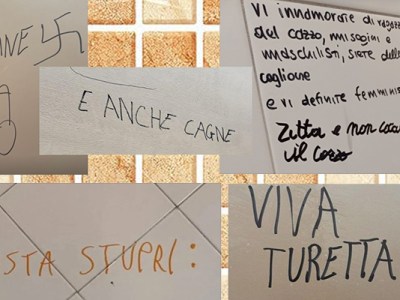 ANE
E ANCHE CAGNE
VI innamorate di ragazz
del cazzo, misogini e
maschilisti, siete delle
coglione
e vi definite feminis
Zitta e non
il cazzo
STA STUPRI:
VIVA
TURETTA